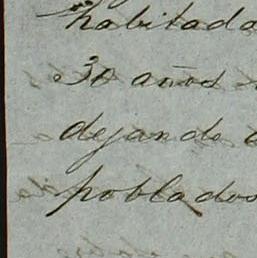 habitada
30 años
dejando
poblados